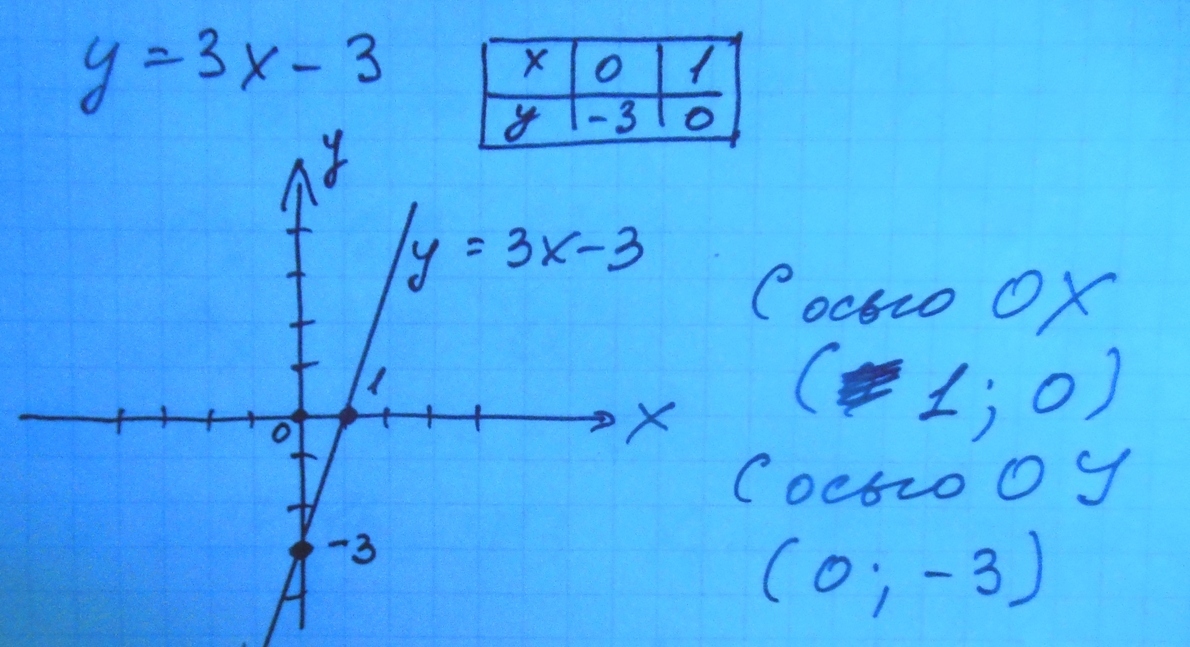 y = 3x - 3
x 0 1
y -3 0
y
y = 3x - 3
1
0
x
-3
С осью OX
(1; 0)
С осью OY
(0; -3)